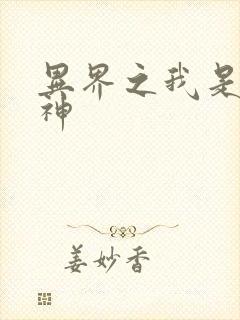 異界之我是
神
姜妙香